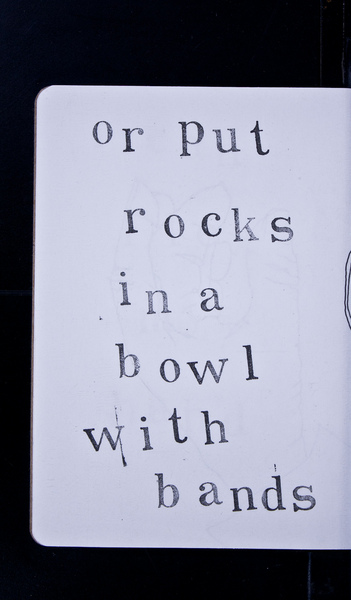 or put
rocks
in a
bowl
with
bands